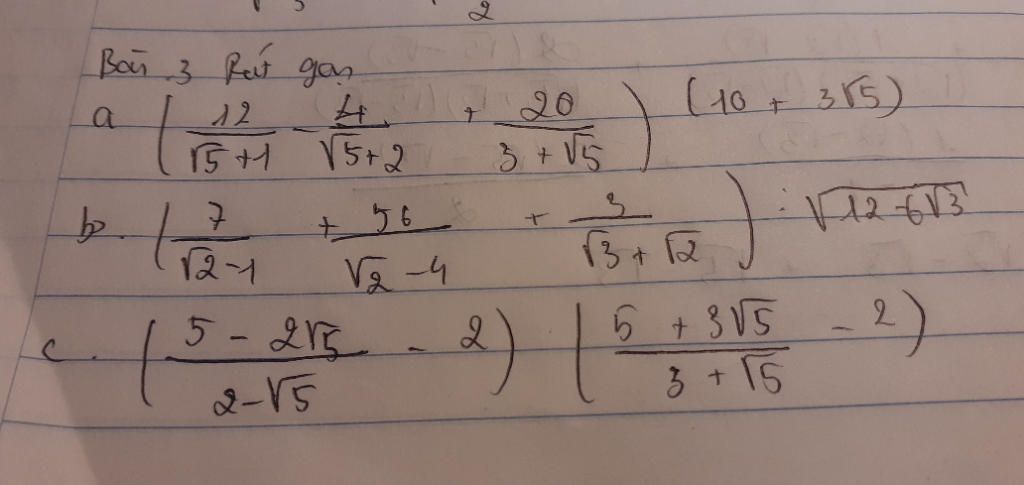 √3 2
Bài 3 Rút gọn
a (12/(√5+1) - 4/(√5+2) + 20/(3+√5)) (10 + 3√5)
b. (7/(√2-1) + 56/(√2-4) + 3/(√3+√2)) : √(12-6√3)
c. ((5-2√5)/(2-√5) - 2) ((5+3√5)/(3+√5) - 2)